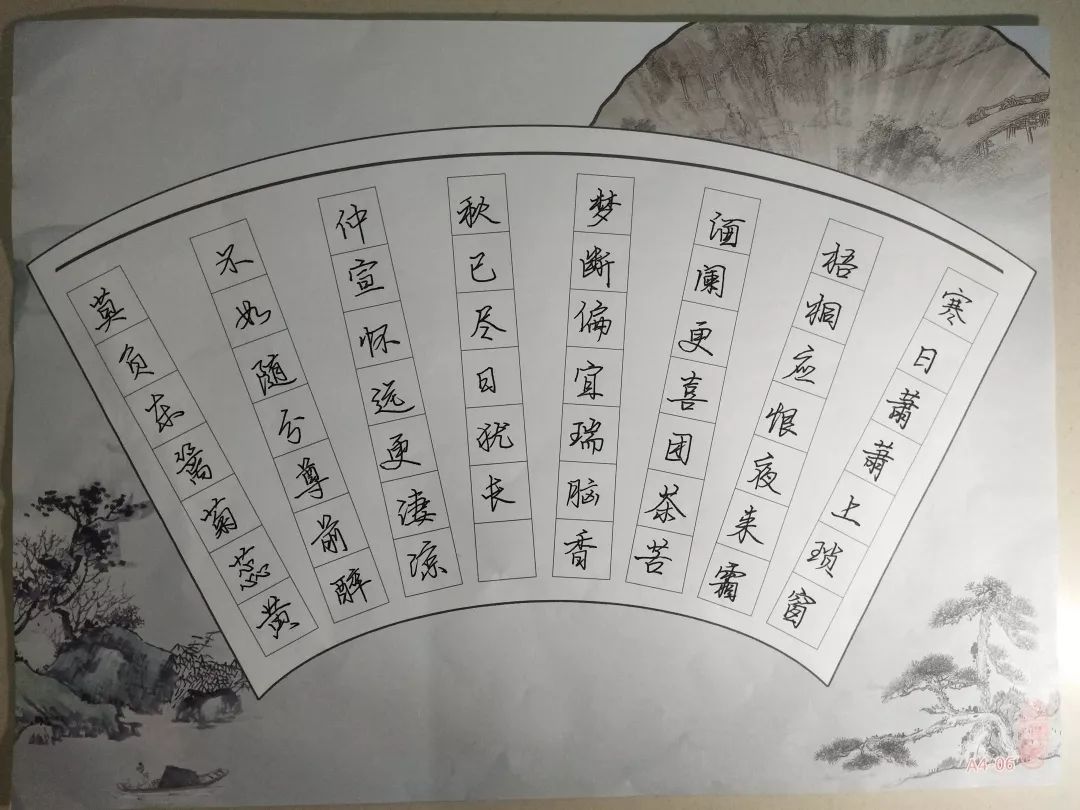 寒日萧萧上琐窗
梧桐应恨夜来霜
湎阑更喜团茶苦
梦断偏宜瑞脑香
秋已尽日犹长
仲宣怀远更凄凉
不如随分尊前醉
莫负东篱菊蕊黄
A4-06